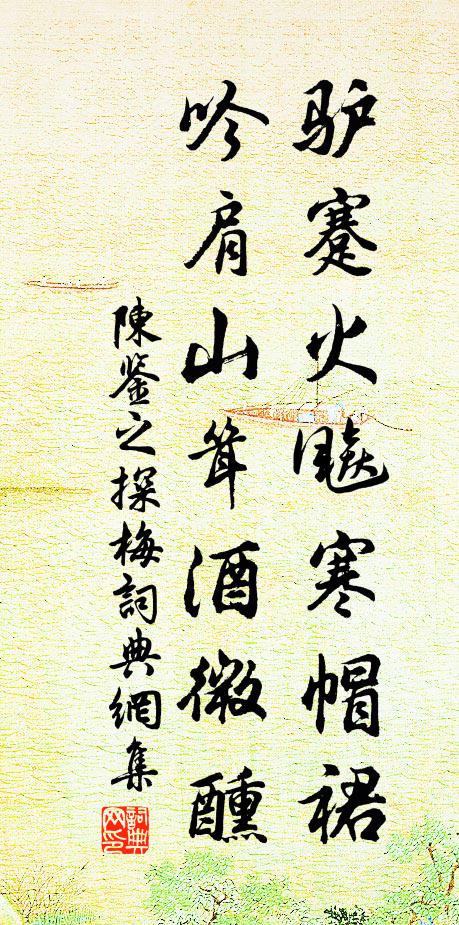 驴蹇火飚寒帽裙
吟肩山耸酒微醺
陳鉴之探梅詞典網集
詞典网印